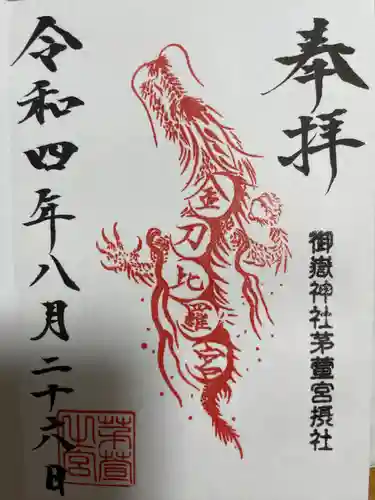 奉拝
御嶽神社茅萱宮摂社
金刀比羅宮
令和四年八月二十六日
茅萱
山宮